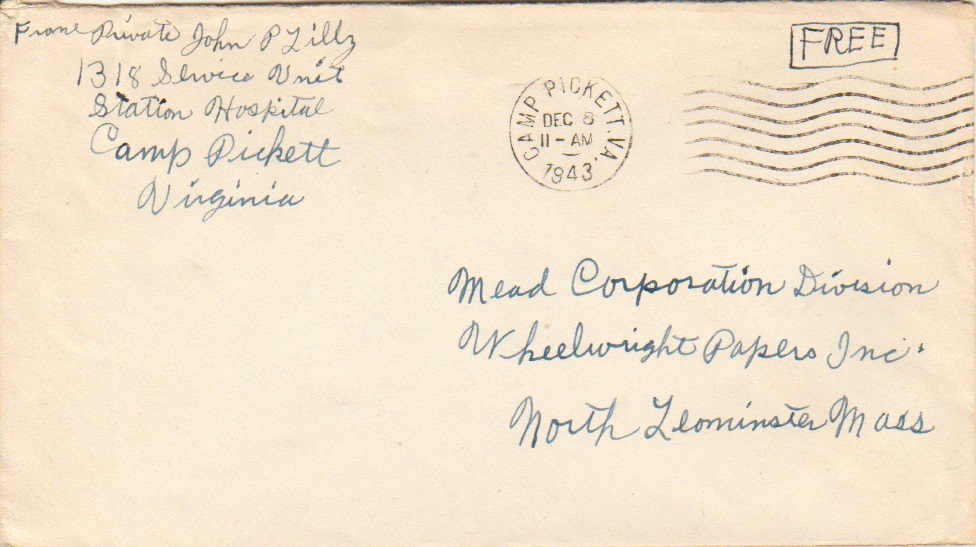 From Private John P Lilly
1318 Service Unit
Station Hospital
Camp Pickett
Virginia
FREE
CAMP PICKETT. VA.
DEC 8
11-AM
1943
Mead Corporation Division
Wheelwright Papers Inc.
North Leominster Mass